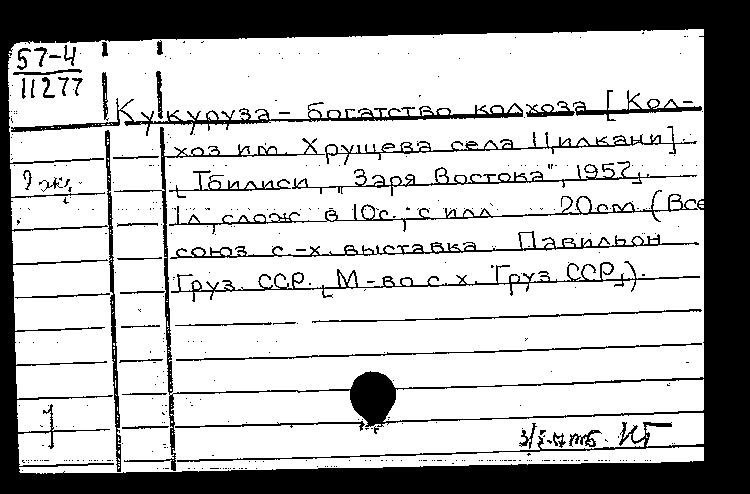 57-4
11277
Кукуруза - богатство колхоза [Кол-
хоз им. Хрущева села Цилкани].
[Тбилиси, „Заря Востока", 1957].
2 экз.
1л., слож. в 10с.; с илл. 20см (Все
союз. с.-х. выставка. Павильон
Груз. ССР. [М-во с. х. Груз. ССР]).